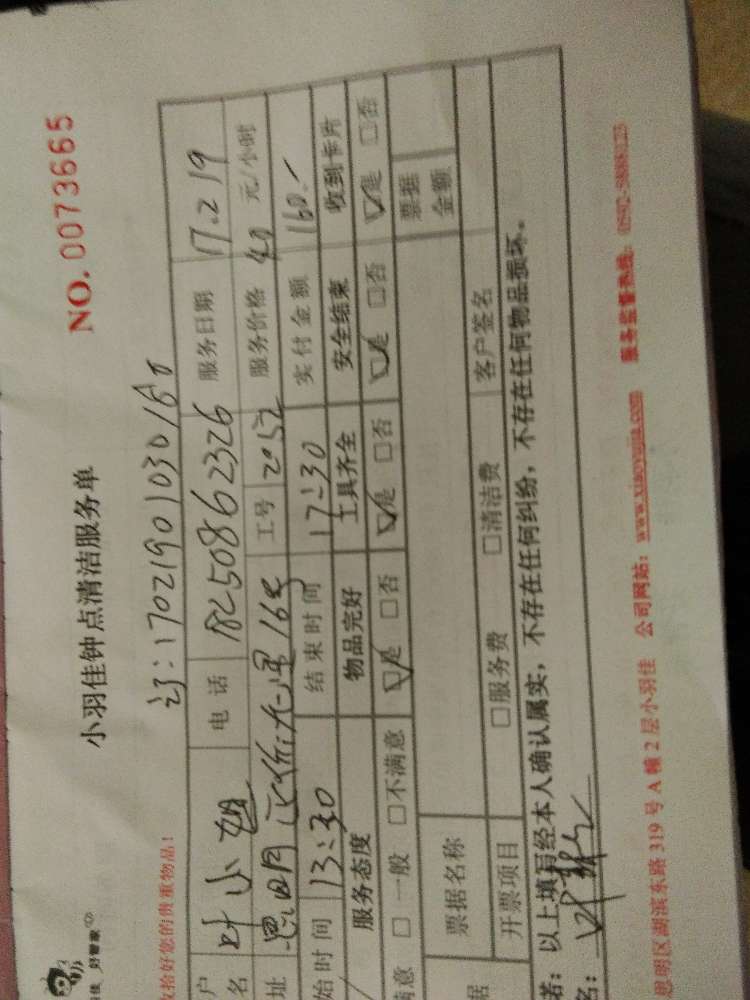 小羽佳钟点清洁服务单
NO. 0073665
好管家
拾好您的贵重物品!
17021901030160
户名 叶小姐 电话 18250862326 服务日期 17.2.19
址 思明 工号 2052 服务价格 40 元/小时
始时间 13:30 结束时间 17:30 实付金额 160.-
服务态度 物品完好 工具齐全 安全结束 收到卡片
意 □ 一般 □不满意 ☑是 □否 ☑是 □否 ☑是 □否 ☑是 □否
据 票据名称 票据金额
开票项目 □服务费 □清洁费 客户签名
若:以上填写经本人确认属实,不存在任何纠纷,不存在任何物品损坏。
名:
思明区湖滨东路 319 号 A 幢 2 层小羽佳 公司网站:www.xiaoyujia.com 服务监督热线: